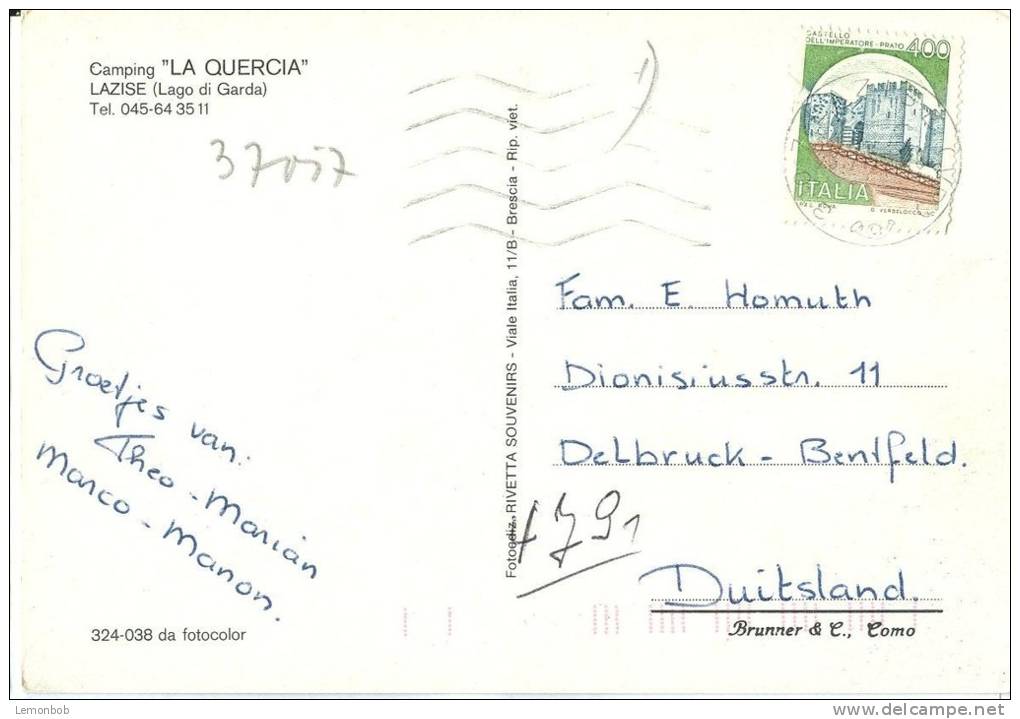 Camping "LA QUERCIA"
LAZISE (Lago di Garda)
Tel. 045-64 35 11
37017
CASTELLO
DELL'IMPERATORE-PRATO 400
ITALIA
Fotoediz. RIVETTA SOUVENIRS - Viale Italia, 11/B - Brescia - Rip. viet.
Fam. E. Homuth
Dionisiusstr. 11
Delbruck - Bentfeld.
Duitsland.
Groetjes van:
Theo - Marian
Marco - Manon.
324-038 da fotocolor
Brunner & C., Como
Lemonbob
delcampe.net